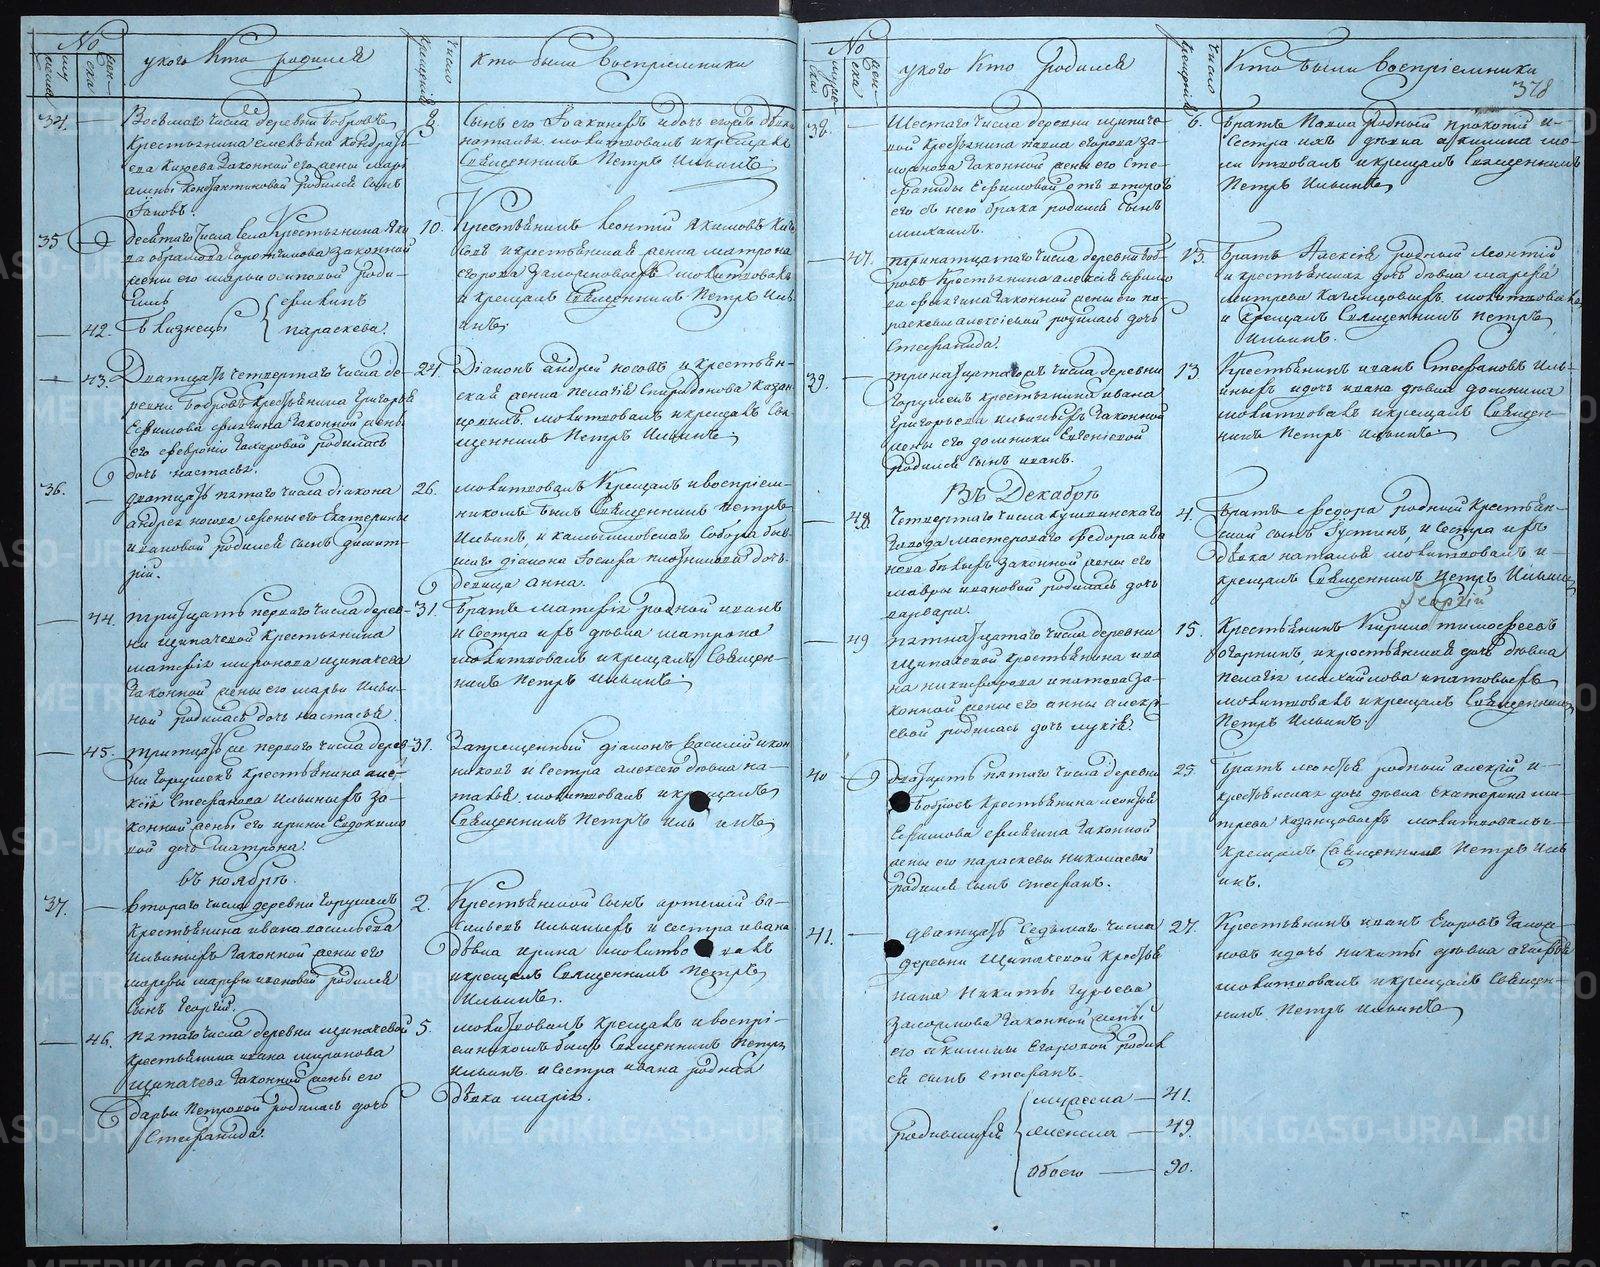 No
у кого Кто родился
число крещенія
кто были воспріемники
34.
Восьмаго числа деревни Бобровъ
крестьянина
законной его жены
родился сынъ
Іаковъ.
9.
сынъ его
наталья. молитвовалъ и крещалъ
Священникъ Петръ Ильинъ.
35
десятаго числа села крестьянина
законной
жены его марьи осиповой роди-
лись
42.
близнецы
параскева.
10.
Крестьянинъ леонтій Якимовъ
и крестьянская жена матрона
егорова молитвовалъ
и крещалъ Священникъ Петръ Иль-
инъ.
43.
Дватцать четвертаго числа де-
ревни Бобровъ крестьянина григорья
Ефимова законной жены
его февроніи Захаровой родилась
дочь настасья.
24.
Діаконъ андрей носовъ и крестьян-
ская жена пелагія Спиридонова Казан-
цовыхъ. молитвовалъ и крещалъ Свя-
щенникъ Петръ Ильинъ.
36.
дватцать пятаго числа діакона
андрея носова жены его Екатерины
ивановой родился сынъ димит-
рій.
26.
молитвовалъ Крещалъ и воспріем-
никомъ былъ Священникъ Петръ
Ильинъ и камышловскаго Собора быв-
шаго діакона Іосифа плотникова дочь
девица анна.
44.
тритцать перваго числа дерев-
ни щипачевой крестьянина
матфея миронова щипачева
законной жены его марьи Ильи-
ной родилась дочь настасья.
31.
братъ матфея родной иванъ
и сестра ихъ девка матрона
молитвовалъ и крещалъ Священ-
никъ Петръ Ильинъ.
45.
тритцать перваго числа дерев-
ни горушекъ крестьянина алек-
сія Стефанова Ильиныхъ за-
конной жены его ирины Евдокимо-
вой дочь матрона.
31.
Запрещенный діаконъ василій икон-
никовъ и сестра алексія девка на-
талья. молитвовалъ и крещалъ
Священникъ Петръ Ильинъ
въ ноябрѣ.
37.
втораго числа деревни горушекъ
крестьянина ивана васильева
Ильиныхъ законной жены его
марфы ивановой родился
сынъ Георгій.
2.
Крестьянской сынъ артемій ва-
сильевъ Ильиныхъ и сестра ивана
девка ирина молитвовалъ
и крещалъ Священникъ Петръ
Ильинъ.
46.
пятаго числа деревни щипачевой
крестьянина ивана миронова
щипачева законной жены его
дарьи Петровой родилась дочь
Стефанида.
5.
молитвовалъ крещалъ и воспрі-
емникомъ былъ Священникъ Петръ
Ильинъ. и сестра ивана родная
девка марія.
No
у кого Кто родился
число крещенія
Кто были воспріемники
378
38.
Шестаго числа деревни щипаче-
вой крестьянина павла егорова за-
законной жены его Сте-
фаниды Ефимовой отъ втораго
его съ нею брака родился сынъ
михаилъ.
6.
братъ Павла родной прокопій и
сестра ихъ девка акилина мо-
литвовалъ и крещалъ Священникъ
Петръ Ильинъ
47.
тринатцатаго числа деревни Боб-
ровъ крестьянина алексія ефимо-
ва законной жены его па-
раскевы алексіевой родилась дочь
Стефанида.
13.
братъ Алексія родной леонтій
и крестьянская дочь девка марфа
митрева Казанцовыхъ молитвовалъ
и крещалъ Священникъ Петръ
Ильинъ.
39.
тринатцатаго числа деревни
Горушекъ крестьянина ивана
григорьева ильиныхъ законной
жены его домники Евгеніевой
родился сынъ иванъ.
13.
Крестьянинъ иванъ Стефановъ Иль-
иныхъ и дочь ивана девка домника
молитвовалъ и крещалъ Священ-
никъ Петръ Ильинъ.
Въ Декабрѣ
48
четвертаго числа кушвинскаго
завода мастероваго федора ива-
нова законной жены его
мавры ивановой родилась дочь
варвара.
4.
братъ федора родной Крестьян-
ской сынъ Іустинъ, и сестра ихъ
девка наталья молитвовалъ и
крещалъ Священникъ Петръ Ильинъ
Георгій
49
пятнатцатаго числа деревни
Щипачевой крестьянина ива-
на никифорова ипатова за-
конной жены его анны алексі-
евой родилась дочь лукія.
15.
Крестьянинъ Кирило тимофеевъ
и крестьянская дочь девка
пелагія михайлова ипатовыхъ
молитвовалъ и крещалъ Священникъ
Петръ Ильинъ.
40
дватцать пятаго числа деревни
Бобровъ Крестьянина леонтья
Ефимова законной
жены его параскевы николаевой
родился сынъ стефанъ.
25.
братъ леонтья родный алексій и
крестьянская дочь девка екатерина ми-
трева казанцовыхъ молитвовалъ и
крещалъ Священникъ Петръ Иль-
инъ.
41.
дватцать Седьмаго числа
деревни Щипачевой крестья-
нина Никиты гурьева
законной жены
его акилины Егоровой родил-
ся сынъ стефанъ.
27.
Крестьянинъ иванъ Егоровъ
и дочь никиты девка
молитвовалъ и крещалъ Священ-
никъ Петръ Ильинъ
родившихся
мужеска — 41.
женска — 49.
обоего — 90.
METRIKI.GASO-URAL.RU